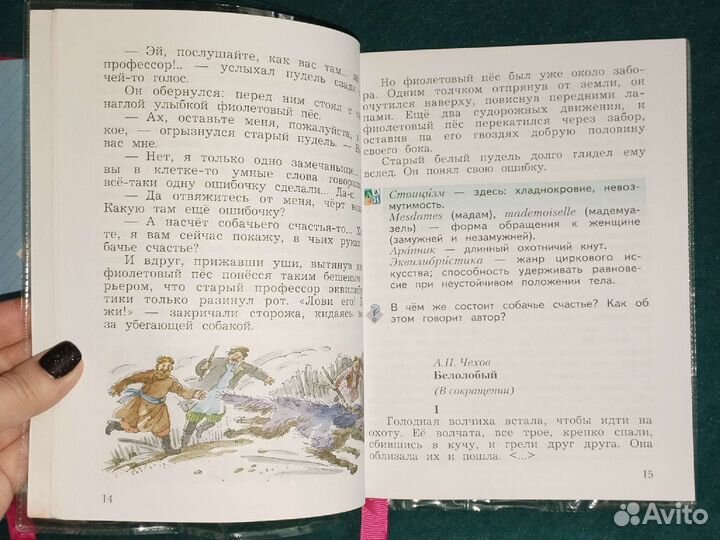 — Эй, послушайте, как вас там...
профессор!.. — услыхал пудель сзади
чей-то голос.
Он обернулся: перед ним стоял с
наглой улыбкой фиолетовый пёс.
— Ах, оставьте меня, пожалуйста,
кое, — огрызнулся старый пудель. —
вас мне.
— Нет, я только одно замечанье...
вы в клетке-то умные слова говорили
всё-таки одну ошибочку сделали... Да-с.
— Да отвяжитесь от меня, чёрт
Какую там ещё ошибочку?
— А насчёт собачьего счастья-то...
те, я вам сейчас покажу, в чьих руках
бачье счастье?
И вдруг, прижавши уши, вытянув
фиолетовый пёс понёсся таким бешеным
рьером, что старый профессор эквилибрис-
тики только разинул рот. «Лови его!
жи!» — закричали сторожа, кидаясь
за убегающей собакой.
14
Но фиолетовый пёс был уже около забо-
ра. Одним толчком отпрянув от земли, он
очутился наверху, повиснув передними ла-
пами. Ещё два судорожных движения, и
фиолетовый пёс перекатился через забор,
оставив на его гвоздях добрую половину
своего бока.
Старый белый пудель долго глядел ему
вслед. Он понял свою ошибку.
Стоици́зм — здесь: хладнокровие, невоз-
мутимость.
Mesdames (мадам), mademoiselle (мадемуа-
зель) — форма обращения к женщине
(замужней и незамужней).
Ара́пник — длинный охотничий кнут.
Эквилибри́стика — жанр циркового ис-
кусства; способность удерживать равнове-
сие при неустойчивом положении тела.
? В чём же состоит собачье счастье? Как об
этом говорит автор?
А.П. Чехов
Белолобый
(В сокращении)
I
Голодная волчиха встала, чтобы идти на
охоту. Её волчата, все трое, крепко спали,
сбившись в кучу, и грели друг друга. Она
облизала их и пошла. <...>
15
Avito